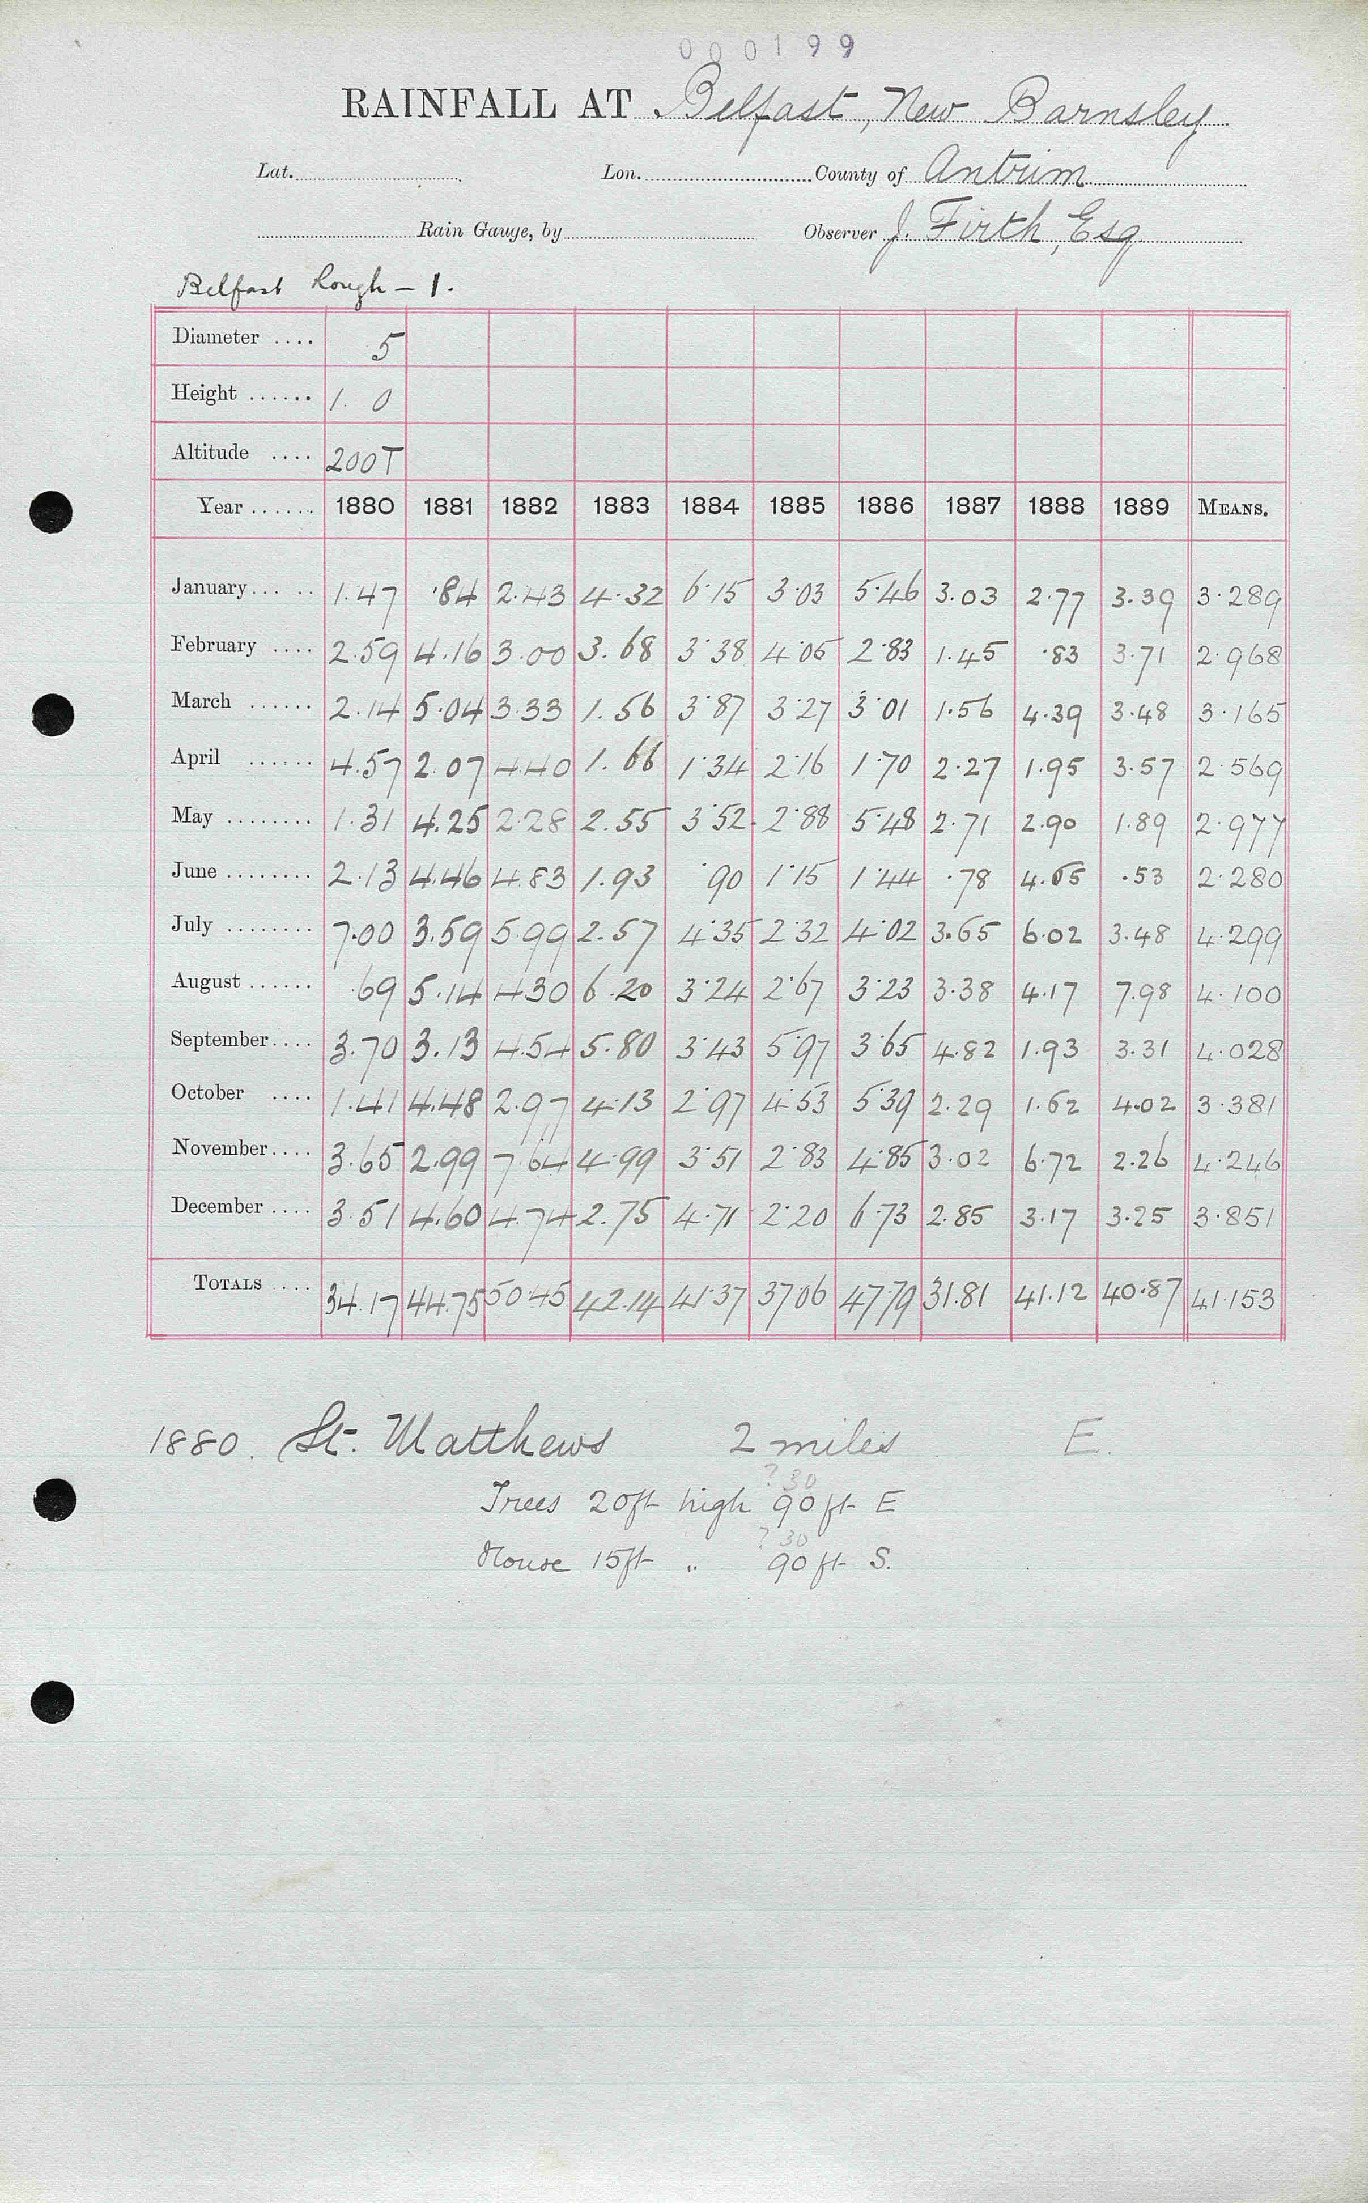 000199
RAINFALL AT Belfast, New Barnsley
Lat. Lon. County of Antrim
Rain Gauge, by Observer J. Firth, Esq
Belfast Rough – 1.
Diameter .... 5
Height ...... 1. 0
Altitude .... 200T
Year ...... 1880 1881 1882 1883 1884 1885 1886 1887 1888 1889 MEANS.
January ..... 1.47 .84 2.43 4.32 6.15 3.03 5.46 3.03 2.77 3.39 3.289
February .... 2.59 4.16 3.00 3.68 3.38 4.05 2.83 1.45 .83 3.71 2.968
March ...... 2.14 5.04 3.33 1.56 3.87 3.27 3.01 1.56 4.39 3.48 3.165
April ...... 4.57 2.07 4.40 1.66 1.34 2.16 1.70 2.27 1.95 3.57 2.569
May ........ 1.31 4.25 2.28 2.55 3.52 2.88 5.48 2.71 2.90 1.89 2.977
June ........ 2.13 4.46 4.83 1.93 .90 1.15 1.44 .78 4.65 .53 2.280
July ........ 7.00 3.59 5.99 2.57 4.35 2.32 4.02 3.65 6.02 3.48 4.299
August ...... .69 5.14 4.30 6.20 3.24 2.67 3.23 3.38 4.17 7.98 4.100
September .... 3.70 3.13 4.54 5.80 3.43 5.97 3.65 4.82 1.93 3.31 4.028
October .... 1.41 4.48 2.97 4.13 2.97 4.53 5.39 2.29 1.62 4.02 3.381
November .... 3.65 2.99 7.64 4.99 3.51 2.83 4.85 3.02 6.72 2.26 4.246
December .... 3.51 4.60 4.74 2.75 4.71 2.20 6.73 2.85 3.17 3.25 3.851
TOTALS .... 34.17 44.75 50.45 42.14 41.37 37.06 47.79 31.81 41.12 40.87 41.153
1880. St. Matthews 2 miles E.
? 30
Trees 20ft high 90ft E
? 30
House 15ft " 90ft S.